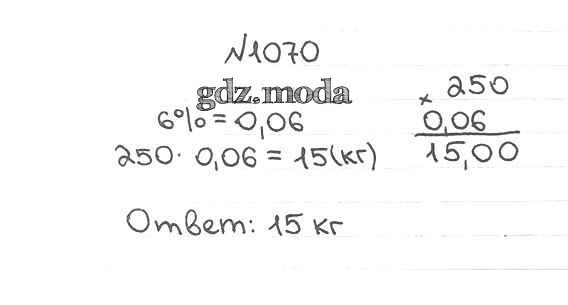 №1070
gdz.moda
6% = 0,06
250 · 0,06 = 15(кг)
× 250
0,06
15,00
Ответ: 15 кг